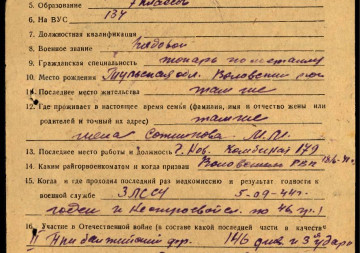 5. Образование 7 классов
6. На ВУС 134
7. Должностная квалификация
8. Военное звание Рядовой
9. Гражданская специальность токарь по металлу
10. Место рождения Тульская обл. Воловский р-он
11. Последнее место жительства там же
12. Где проживает в настоящее время семья (фамилия, имя и отчество жены или
родителей и точный их адрес) там же
жена Сотникова М.И.
13. Последнее место работы и должность г. Нов. Комбинат 179
14. Каким райгорвоенкоматом и когда призван Воловским РВК
15. Когда и где проходил последний раз медкомиссию и результат годности к
военной службе ЗЛССУ 5-09-44г.
годен и
16. Участие в Отечественной войне (в составе какой последней части и качестве
II Прибалтийский фр. 146 див. 3 удар